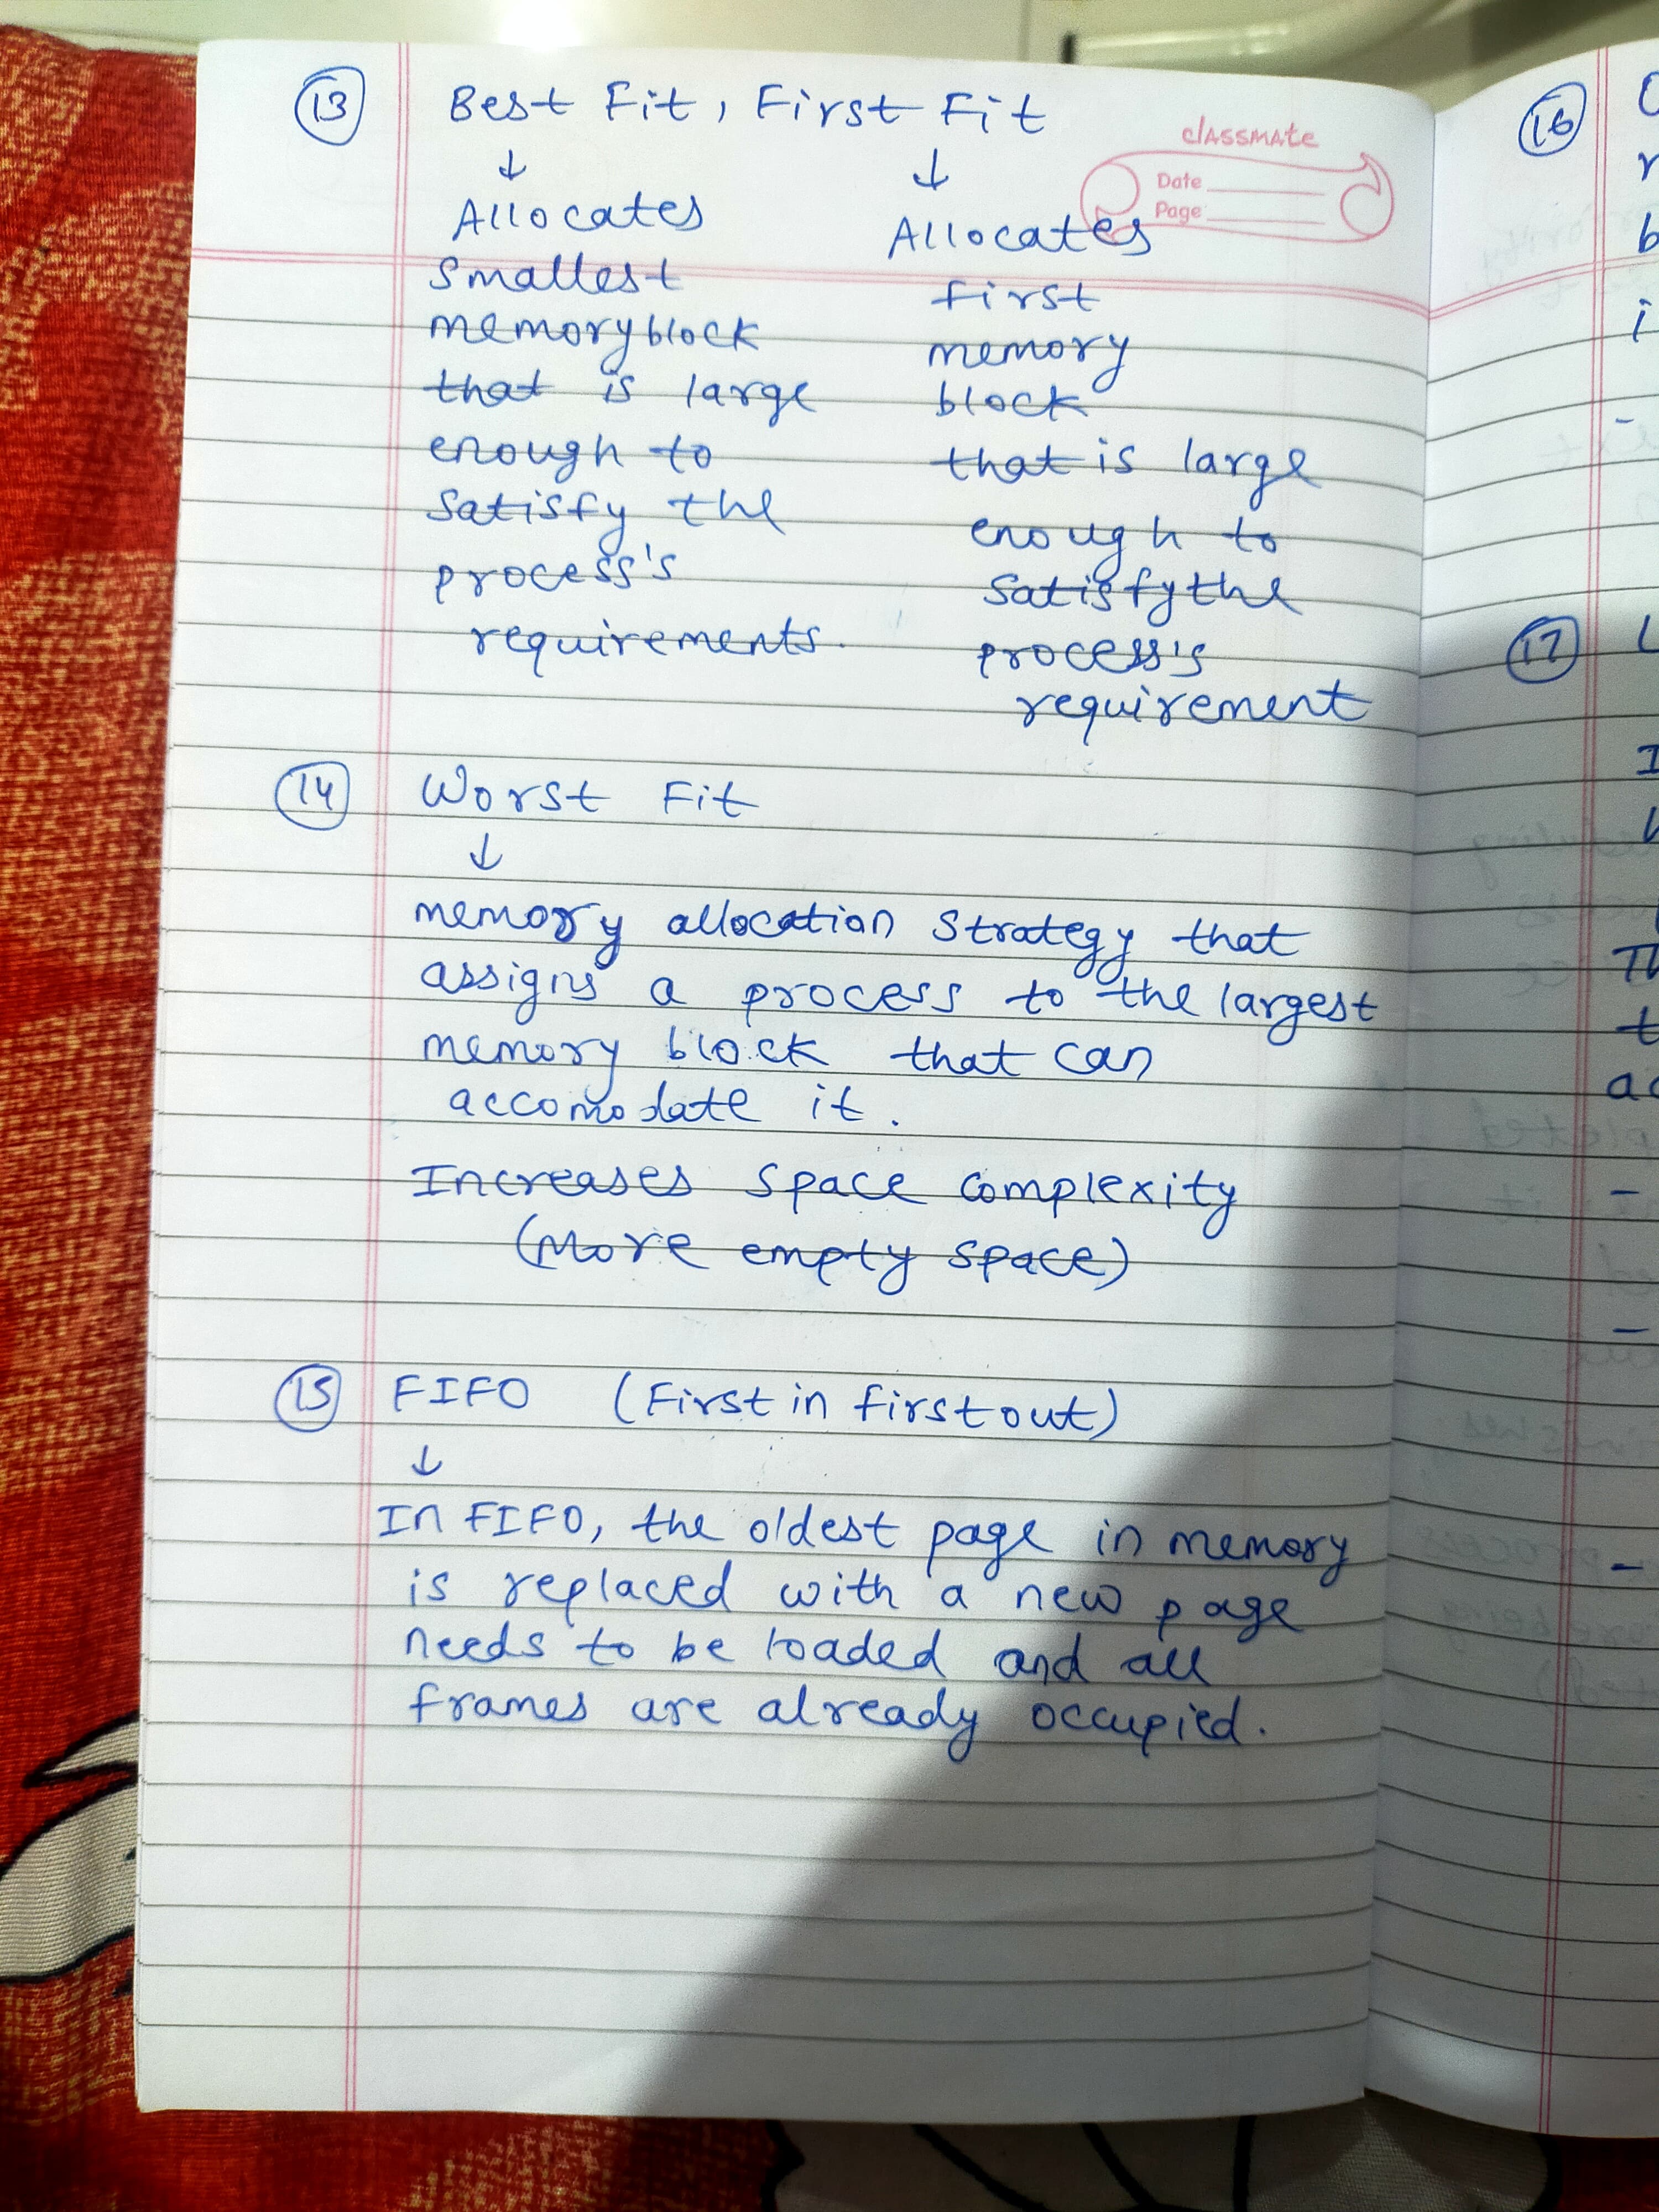 13 Best Fit, First Fit
classmate
Date
Page
↓ ↓
Allocates
Smallest
memory block
that is large
enough to
satisfy the
process's
requirements.
Allocates
first
memory
block
that is large
enough to
satisfy the
process's
requirement
14 Worst Fit
↓
memory allocation strategy that
assigns a process to the largest
memory block that can
accomodate it.
Increases space complexity
(More empty space)
15 FIFO (First in first out)
↓
In FIFO, the oldest page in memory
is replaced with a new page
needs to be loaded and all
frames are already occupied.
16
17